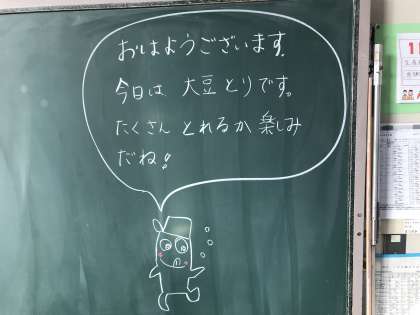 おはようございます。
今日は 大豆とりです。
たくさん とれるか 楽しみ
だね!